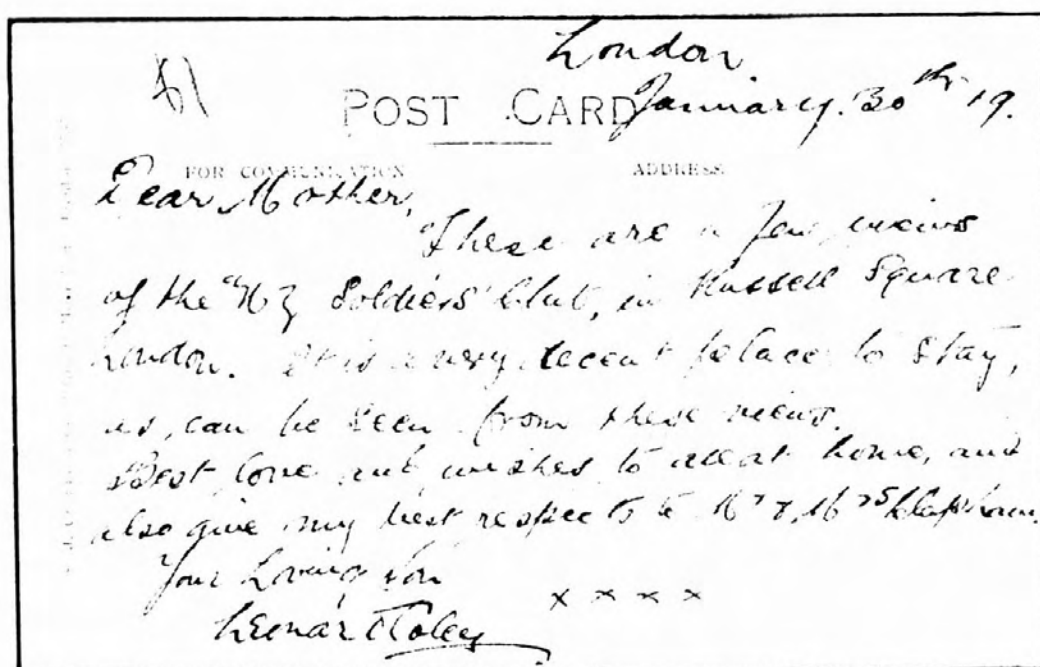 London.
January. 30th 19.
POST CARD
FOR COMMUNICATION ADDRESS
Dear Mother,
These are a few views
of the "N Z Soldiers' Club, in Russell Square
London. It is a very decent place to stay,
as, can be seen from these views.
Best love and wishes to all at home, and
also give my best respects to Mr & Mrs Clapham.
Your Loving Son
x x x x
Leonard